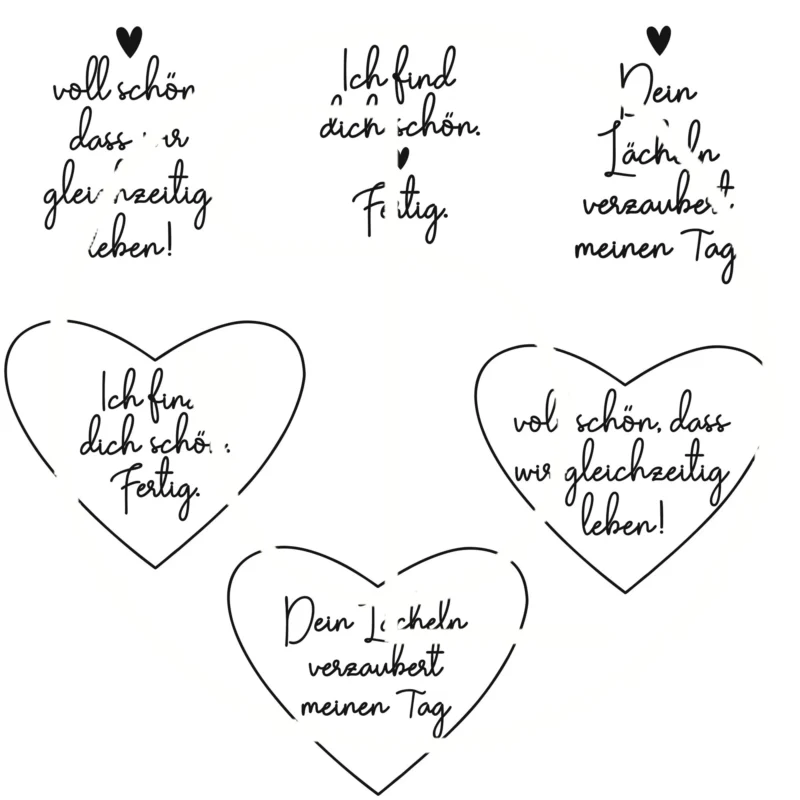 voll schön
dass wir
gleichzeitig
leben!
Ich find
dich schön.
Fertig.
Dein
Lächeln
verzaubert
meinen Tag
Ich find
dich schön.
Fertig.
voll schön, dass
wir gleichzeitig
leben!
Dein Lächeln
verzaubert
meinen Tag